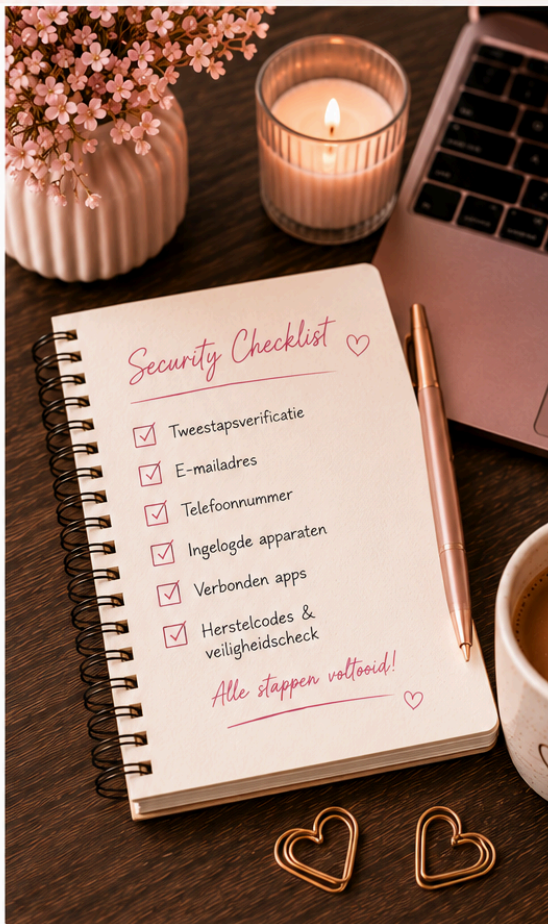 Security Checklist
Tweestapsverificatie
E-mailadres
Telefoonnummer
Ingelogde apparaten
Verbonden apps
Herstelcodes &
veiligheidscheck
Alle stappen voltooid!